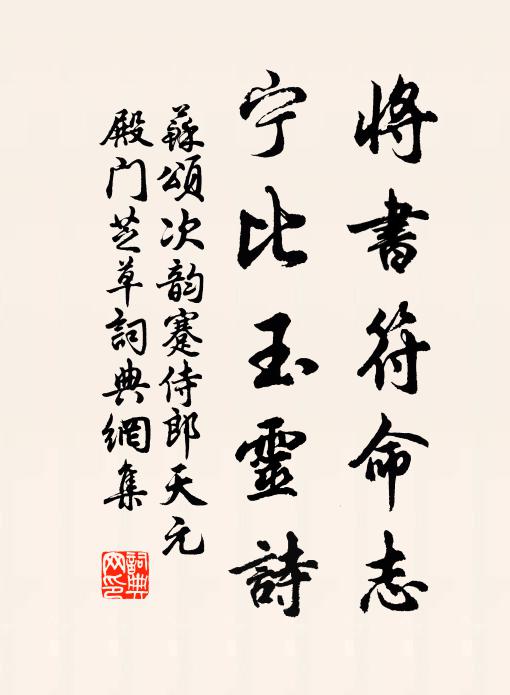 將書符命志
宁比玉靈詩
蘇頌次韵蹇侍郎天元
殿门芝草詞典網集
詞典
网印